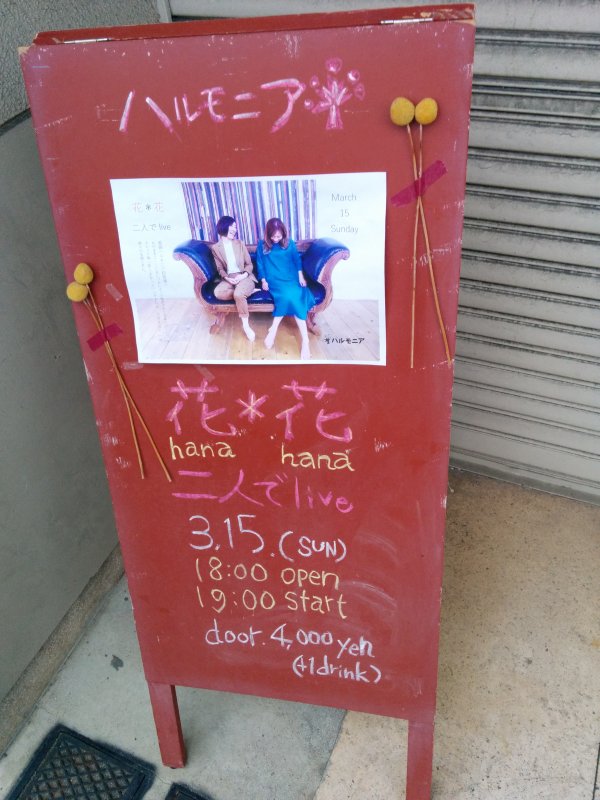 ハルモニア
花*花
二人でlive
March
15
Sunday
ハルモニア
花*花
hana hana
二人でlive
3.15.(SUN)
18:00 open
19:00 start
door.4,000yen
(+1drink)